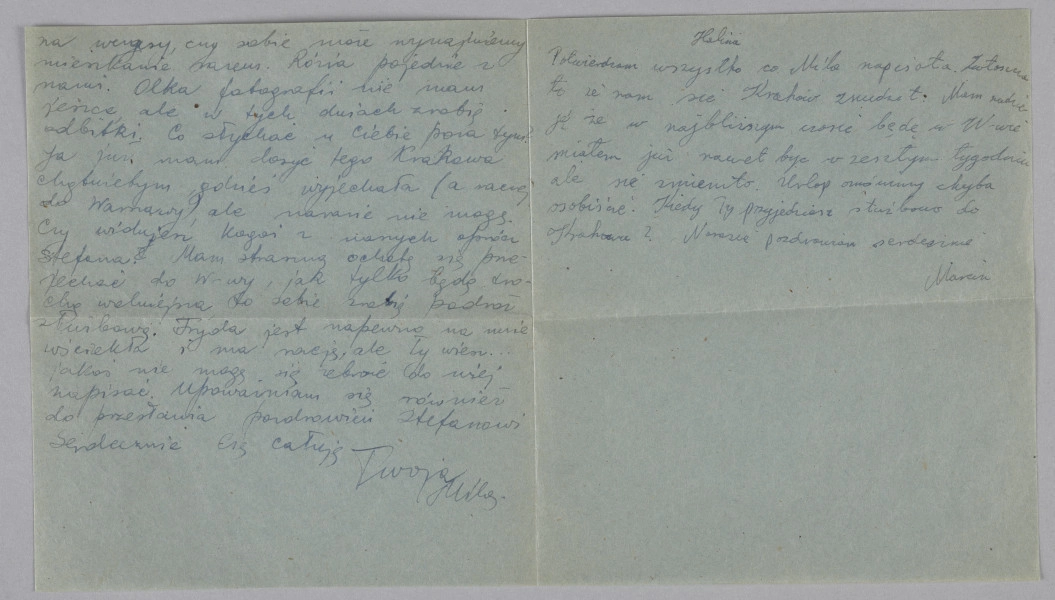 na wczasy, czy sobie może wynajmiemy
mieszkanie razem. Rózia pojedzie z
nami. Olka fotografii nie mam
jeszcze ale w tych dniach zrobię
odbitki. Co słychać u Ciebie poza tym?
Ja już mam dosyć tego Krakowa
chętniebym gdzieś wyjechała (a raczej
do Warszawy), ale narazie nie mogę.
Czy widujesz kogoś z naszych oprócz
Stefana? Mam straszną ochotę się prze-
jechać do W-wy, jak tylko będę tro-
chę wolniejsza to sobie zrobię podróż
służbową. Fryda jest napewno na mnie
wściekła i ma rację, ale Ty wiesz...
jakoś nie mogę się zebrać do niej
napisać. Upoważniam się również
do przesłania pozdrowień Stefanowi
Serdecznie Cię całuję
Twoja
Mila.
Halina
Potwierdzam wszystko co Mila napisała.
to że nam się Kraków znudził. Mam nadzie
ję że w najbliższym czasie będę w W-wie
miałem już nawet być w zeszłym tygodniu
ale się zmieniło. Urlop omówimy chyba
osobiście. Kiedy Ty przyjedziesz służbowo do
Krakowa? Narazie pozdrawiam serdecznie
Marcin